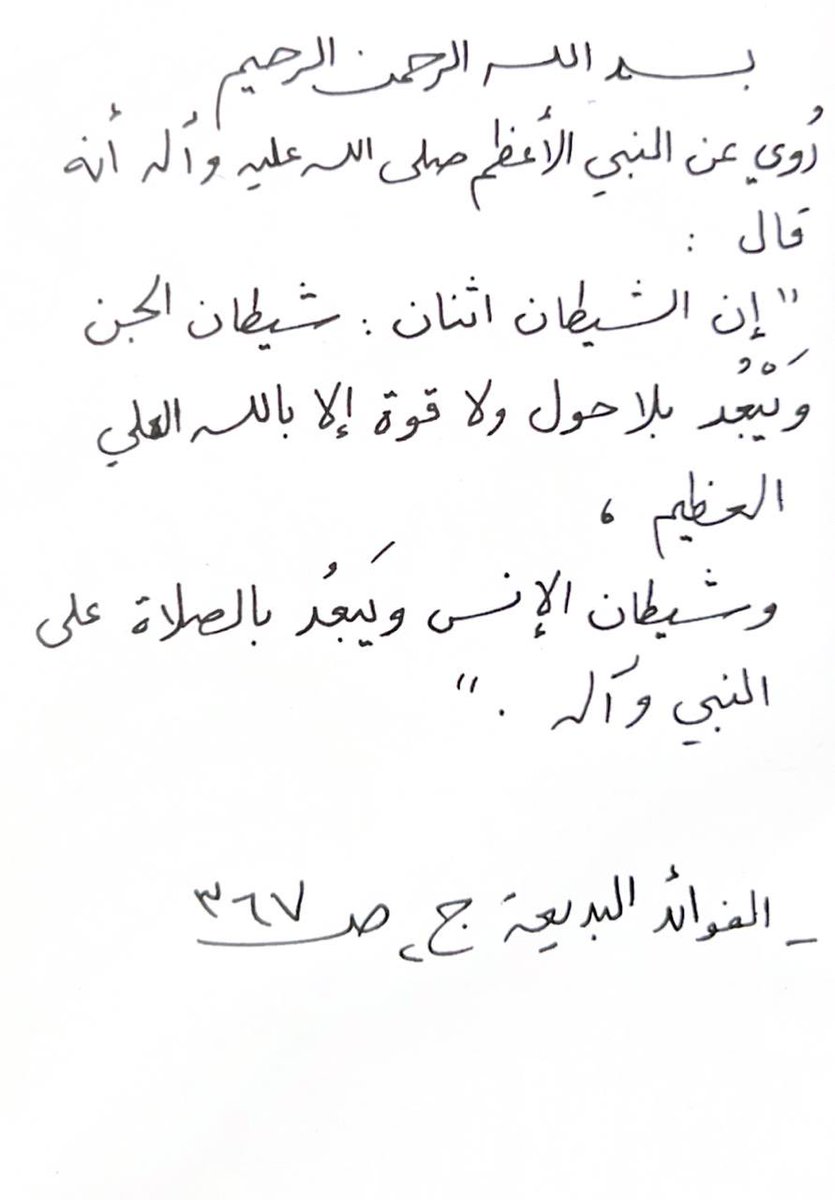 بسم الله الرحمن الرحيم
رُوي عن النبي الأعظم صلى الله عليه وأله أنه
قال :
"إن الشيطان اثنان : شيطان الجن
وَيَبْعُد بلا حول ولا قوة إلا بالله العلي
العظيم ،
وشيطان الإنس ويَبعُد بالصلاة على
النبي وآله . "
_ الفوائد البديعة ج٢ صـ ٣٦٧